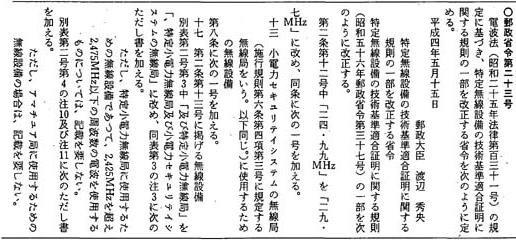 〇郵政省令第二十三号
電波法(昭和二十五年法律第百三十一号)の規
定に基づき、特定無線設備の技術基準適合証明に
関する規則の一部を改正する省令を次のように定
める。
平成四年五月十五日
郵政大臣 渡辺 秀央
特定無線設備の技術基準適合証明に関する
規則の一部を改正する省令
特定無線設備の技術基準適合証明に関する規則
(昭和五十六年郵政省令第三十七号)の一部を次
のように改正する。
第二条第十二号中「二四・九九MHz」を「二九・
七MHz」に改め、同条に次の一号を加える。
十三 小電力セキュリティシステムの無線局
(施行規則第六条第四項第三号に規定する
無線局をいう。以下同じ。)に使用するため
の無線設備
第八条に次の一号を加える。
十七 第二条第十三号に掲げる無線設備
別表第二号第3中「及び特定小電力無線局」を
「、特定小電力無線局及び小電力セキュリティシ
ステムの無線局」に改め、同表第3の注3に次の
ただし書を加える。
ただし、特定小電力無線局に使用するた
めの無線設備であって、2,425MHzを超え
2,475MHz以下の周波数の電波を使用する
ものについては、記載を要しない。
別表第二号第4の注10及び注11に次のただし書
を加える。
ただし、アマチュア局に使用するための
無線設備の場合は、記載を要しない。